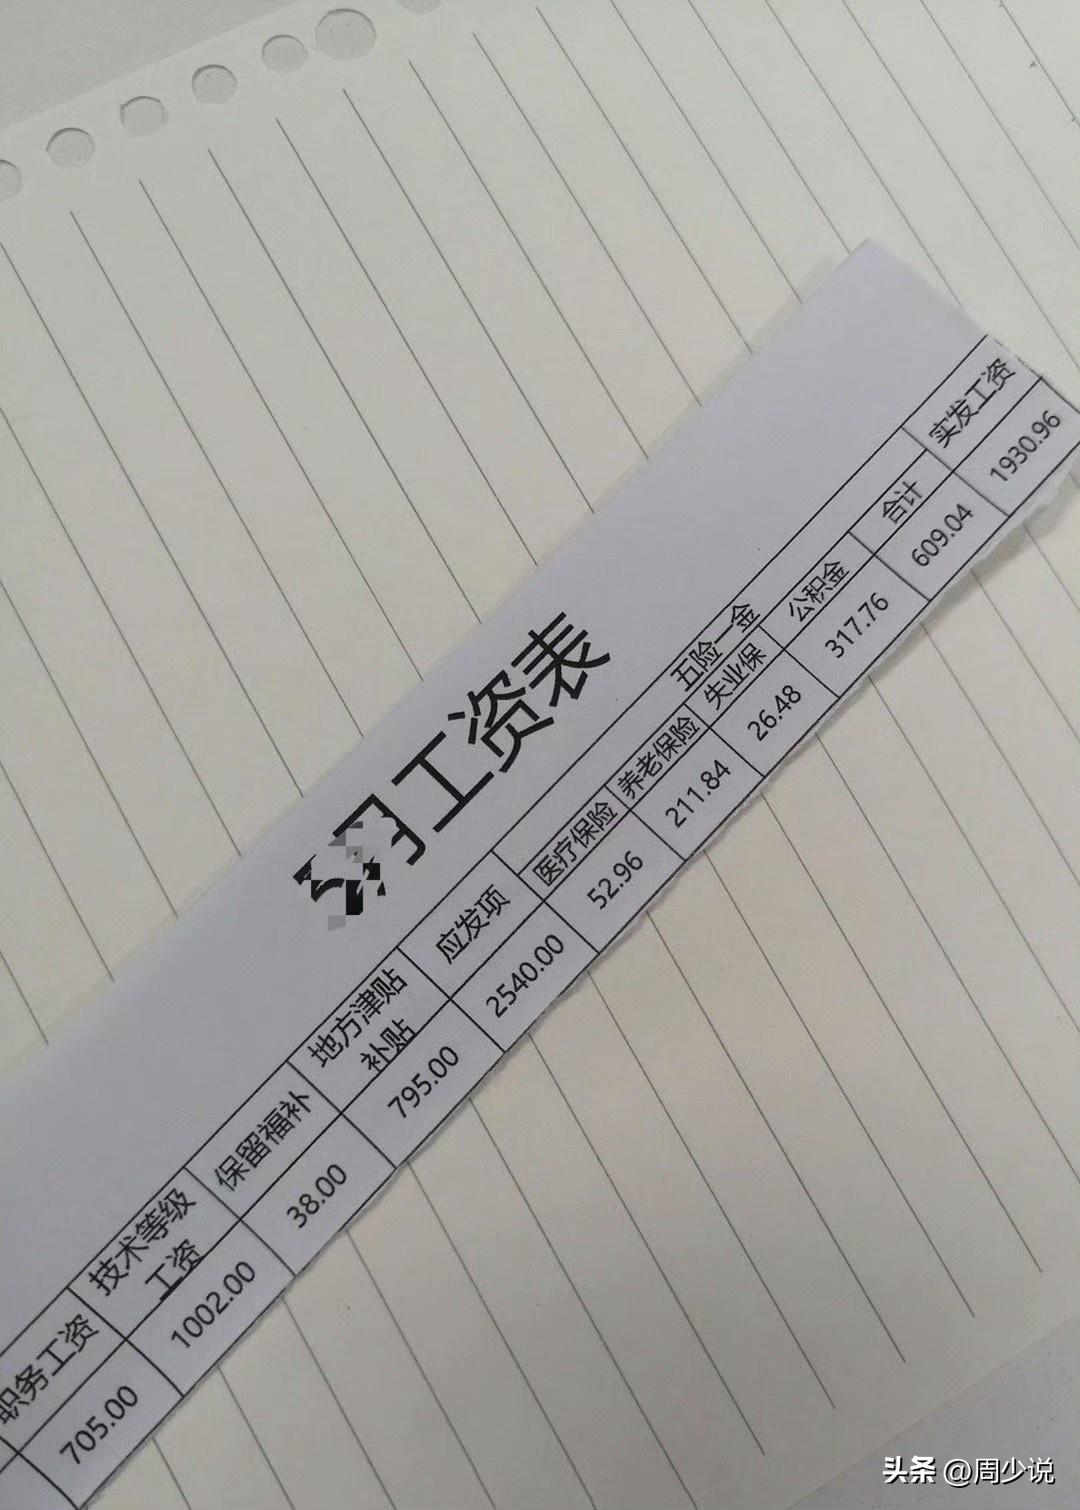 月工资表
职务工资 技术等级工资 保留福补 地方津贴补贴 应发项 五险一金 实发工资
医疗保险 养老保险 失业保 公积金 合计
705.00 1002.00 38.00 795.00 2540.00 52.96 211.84 26.48 317.76 609.04 1930.96
头条 @周少说